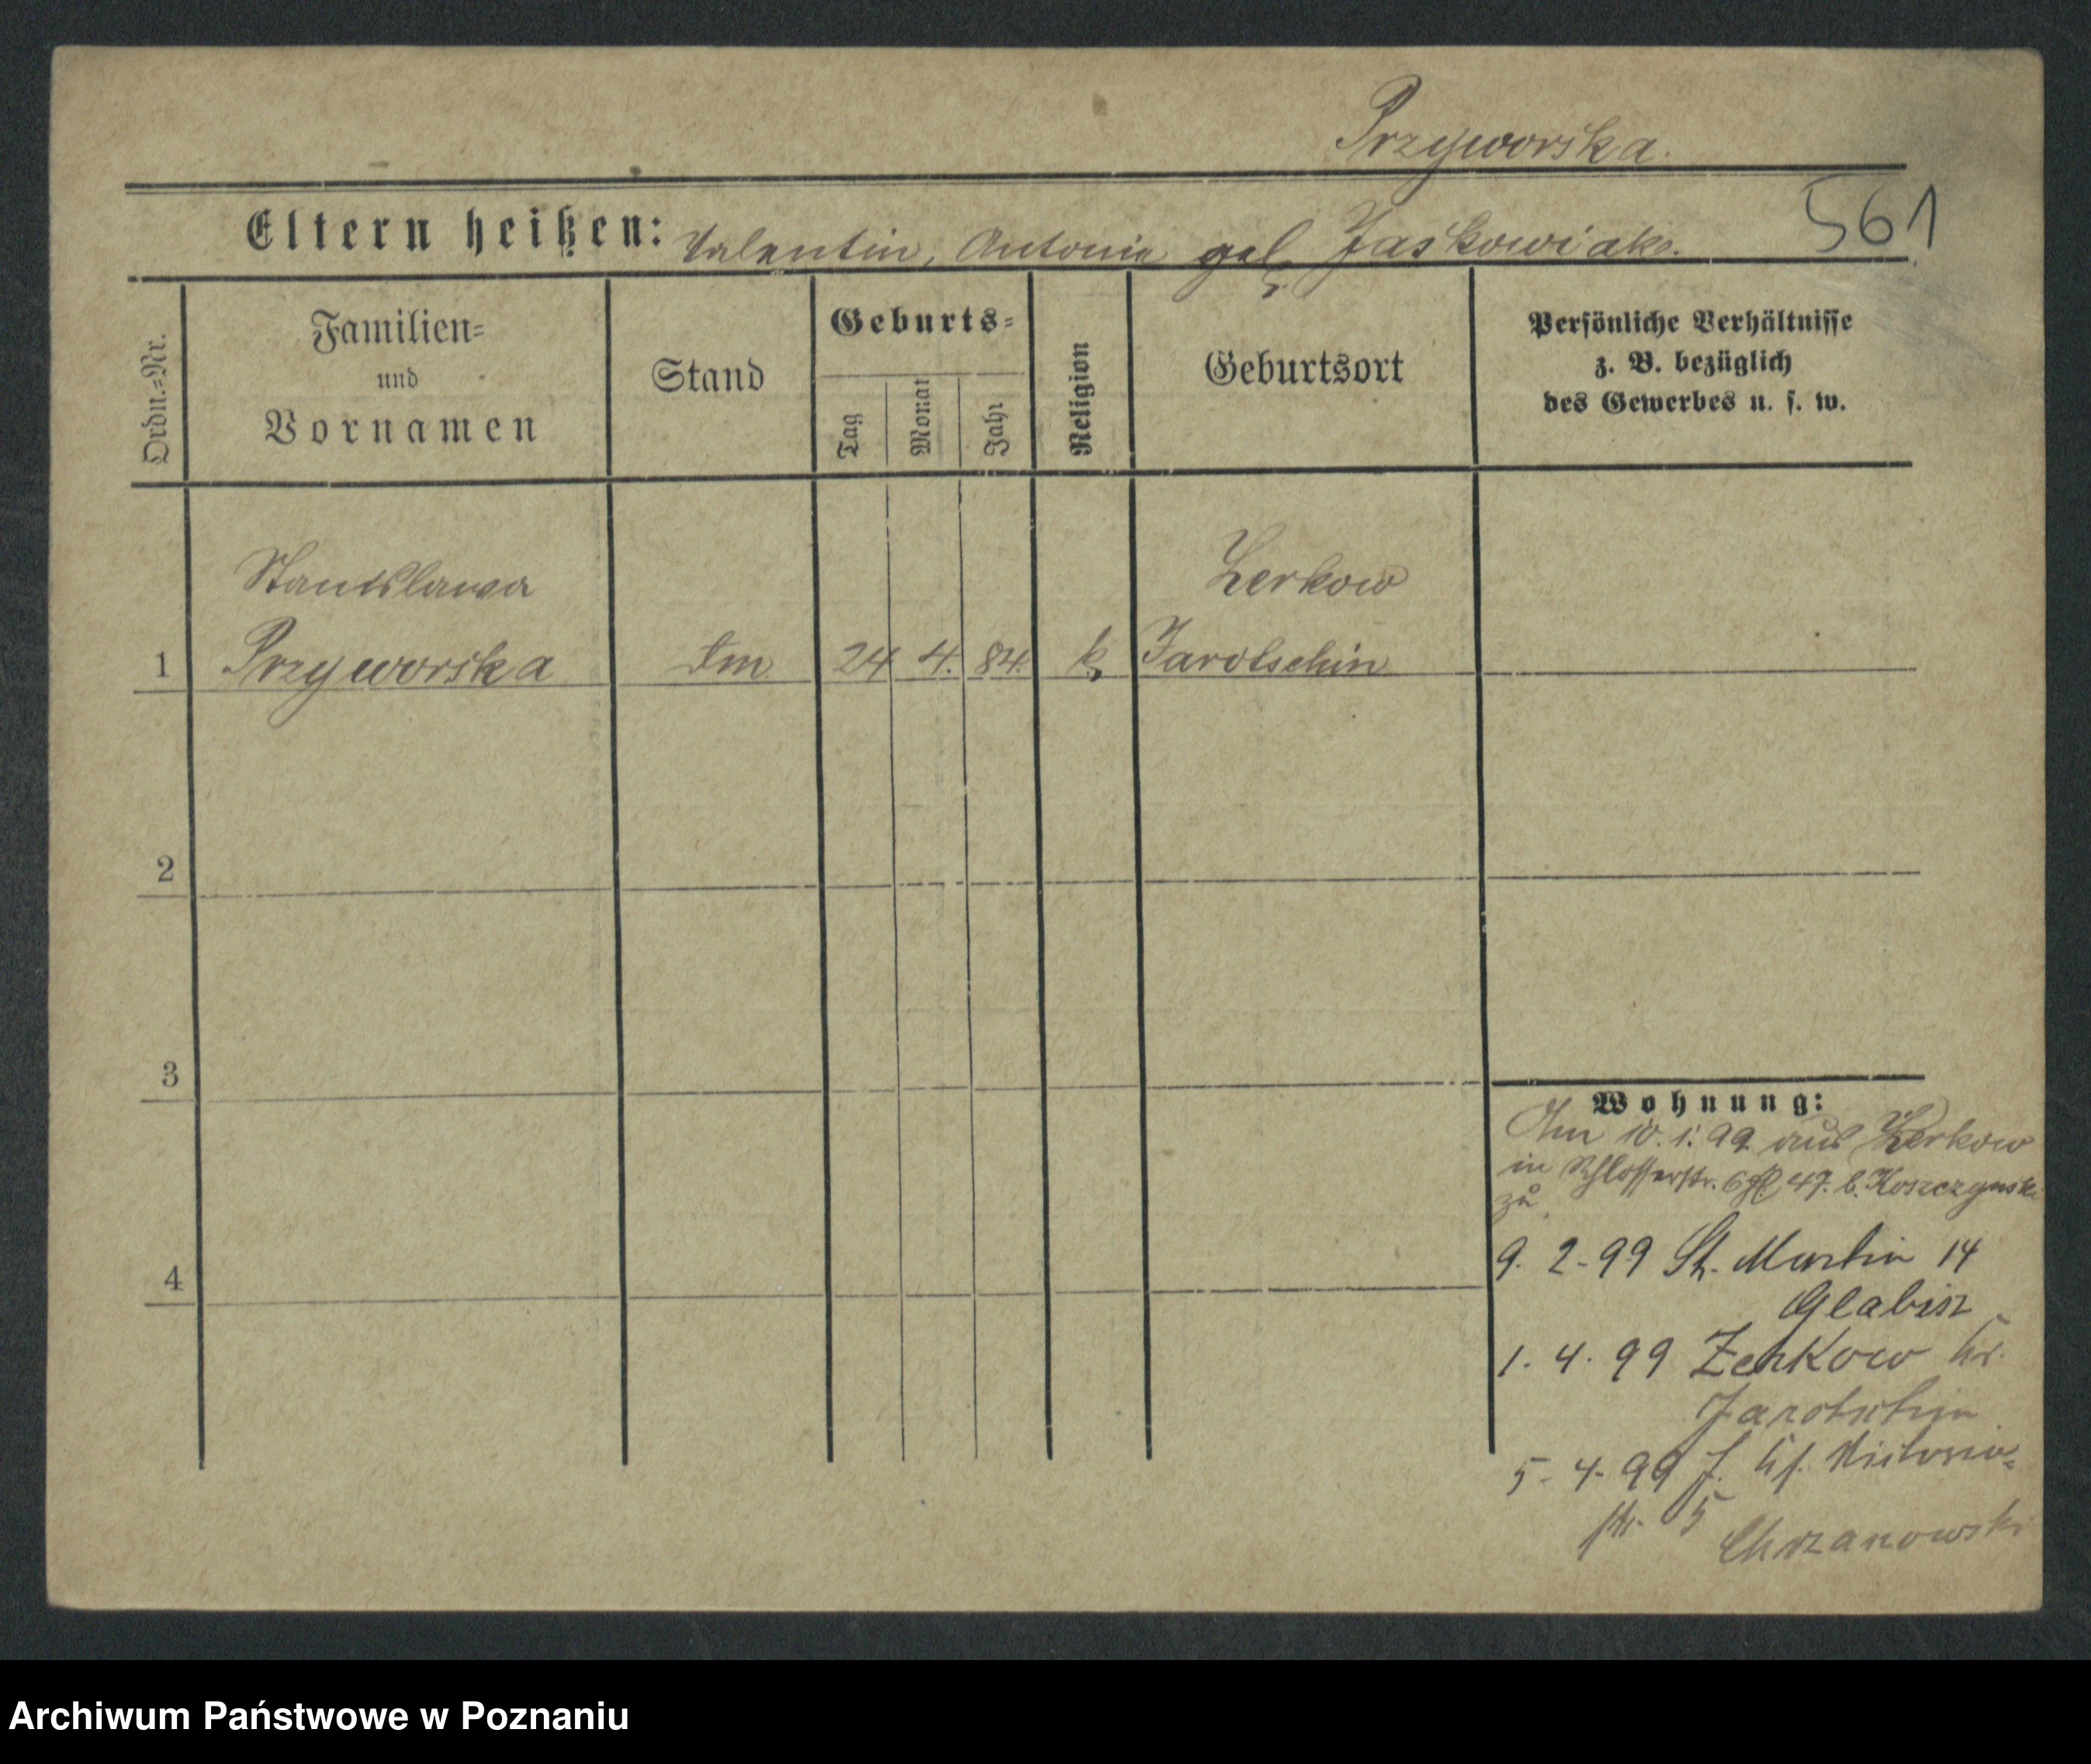 Przyworska.
Eltern heißen: Valentin, Antonie geb. Jaskowiak.
561
Ordn.-Nr.
Familien-
und
Vornamen
Stand
Geburts-
Tag
Monat
Jahr
Religion
Geburtsort
Persönliche Verhältnisse
z. B. bezüglich
des Gewerbes u. s. w.
Stanislawa
Zerkow
1 Przyworska 24. 4. 84. k. Jarotschin
2
3
4
Wohnung:
Am 10. 1. 99. aus Zerkow
in Schlosserstr. 6 47. b. Koszczynski
zu
9. 2. 99 St. Martin 14
Glabisz
1. 4. 99 Zerkow Kr.
Jarotschin
5. 4. 99 J. Victoria-
str. 5
Chrzanowski
Archiwum Państwowe w Poznaniu